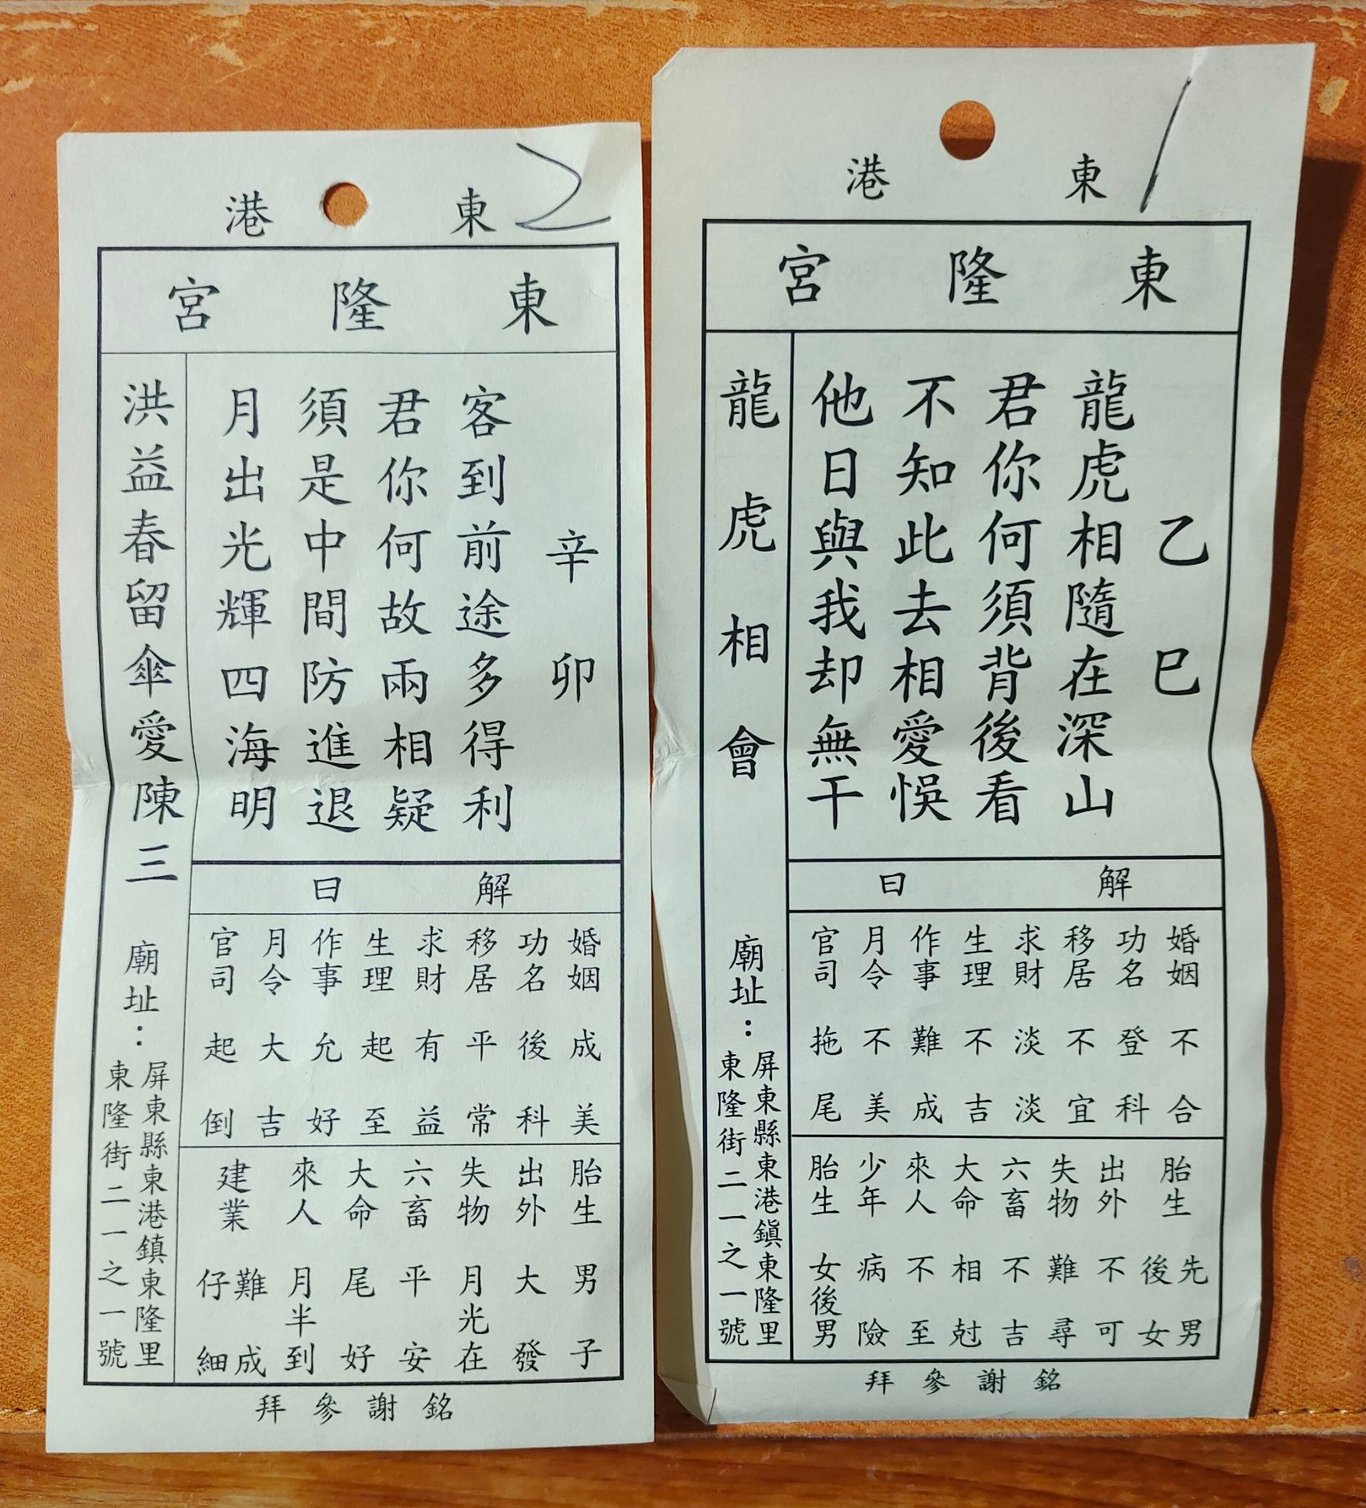 2
東港
東隆宮
辛卯
客到前途多得利
君你何故兩相疑
須是中間防進退
月出光輝四海明
洪益春留傘愛陳三
解曰
婚姻成美
功名後科
移居平常
求財有益
生理起至
作事允好
月令大吉
官司起倒
胎生男子
出外大發
失物月光在
六畜平安
大命尾好
來人月半到
建業難成仔細
廟址：屏東縣東港鎮東隆里
東隆街二一之一號
銘謝參拜
1
東港
東隆宮
乙巳
龍虎相隨在深山
君你何須背後看
不知此去相愛悞
他日與我却無干
龍虎相會
解曰
婚姻不合
功名登科
移居不宜
求財淡淡
生理不吉
作事難成
月令不美
官司拖尾
胎生先男後女
出外不可
失物難尋
六畜不吉
大命相尅
來人不至
少年病險
胎生女後男
廟址：屏東縣東港鎮東隆里
東隆街二一之一號
銘謝參拜